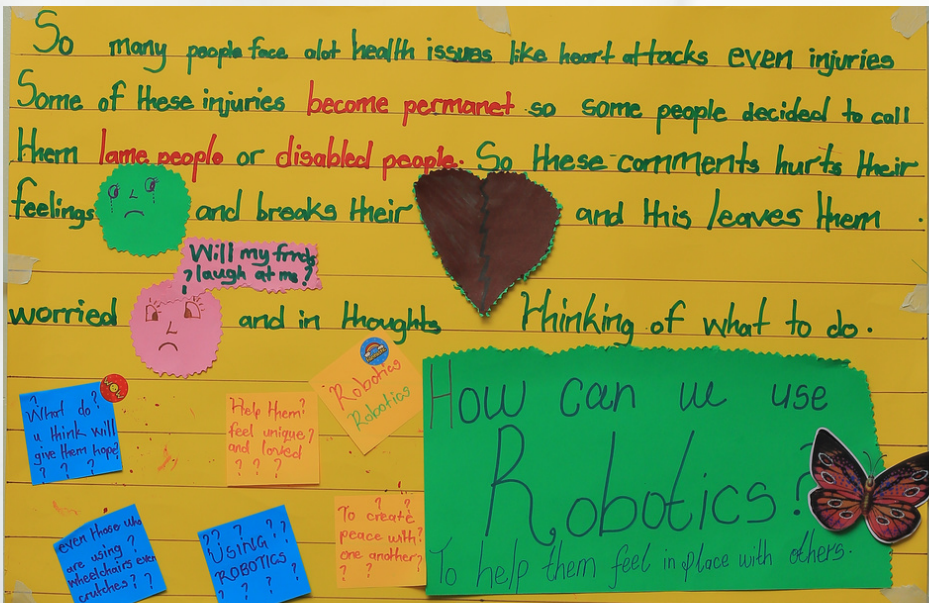 So many people face alot health issues like heart attacks even injuries
Some of these injuries become permanet so some people decided to call
them lame people or disabled people. So these comments hurts their
feelings and breaks their and this leaves them .
Will my frnds
? laugh at me?
worried and in thoughts Thinking of what to do.
WOW
What do?
u think will
give them hope?
? ? ?
Help them?
feel unique?
and loved
? ? ?
Robotics
Robotics
How can we use
Robotics?
To help them feel in place with others.
even those who
are using ?
wheelchairs even
crutches? ?
?? ? ?
USING ?
ROBOTICS
? ? ?
? ?
To create
peace with?
one another?
? ?